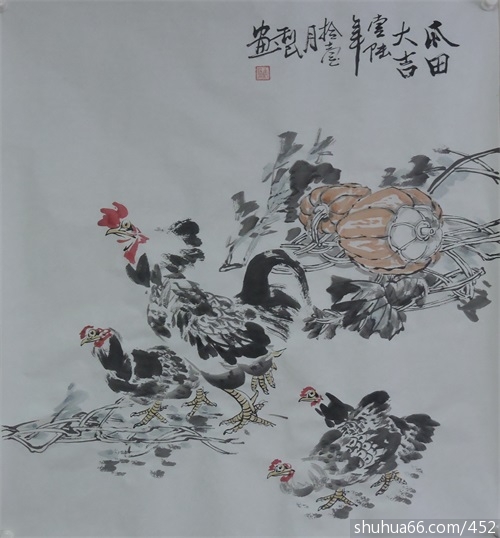 瓜田
大吉
壹陆
年
拾壹
月
画
shuhua66.com/452